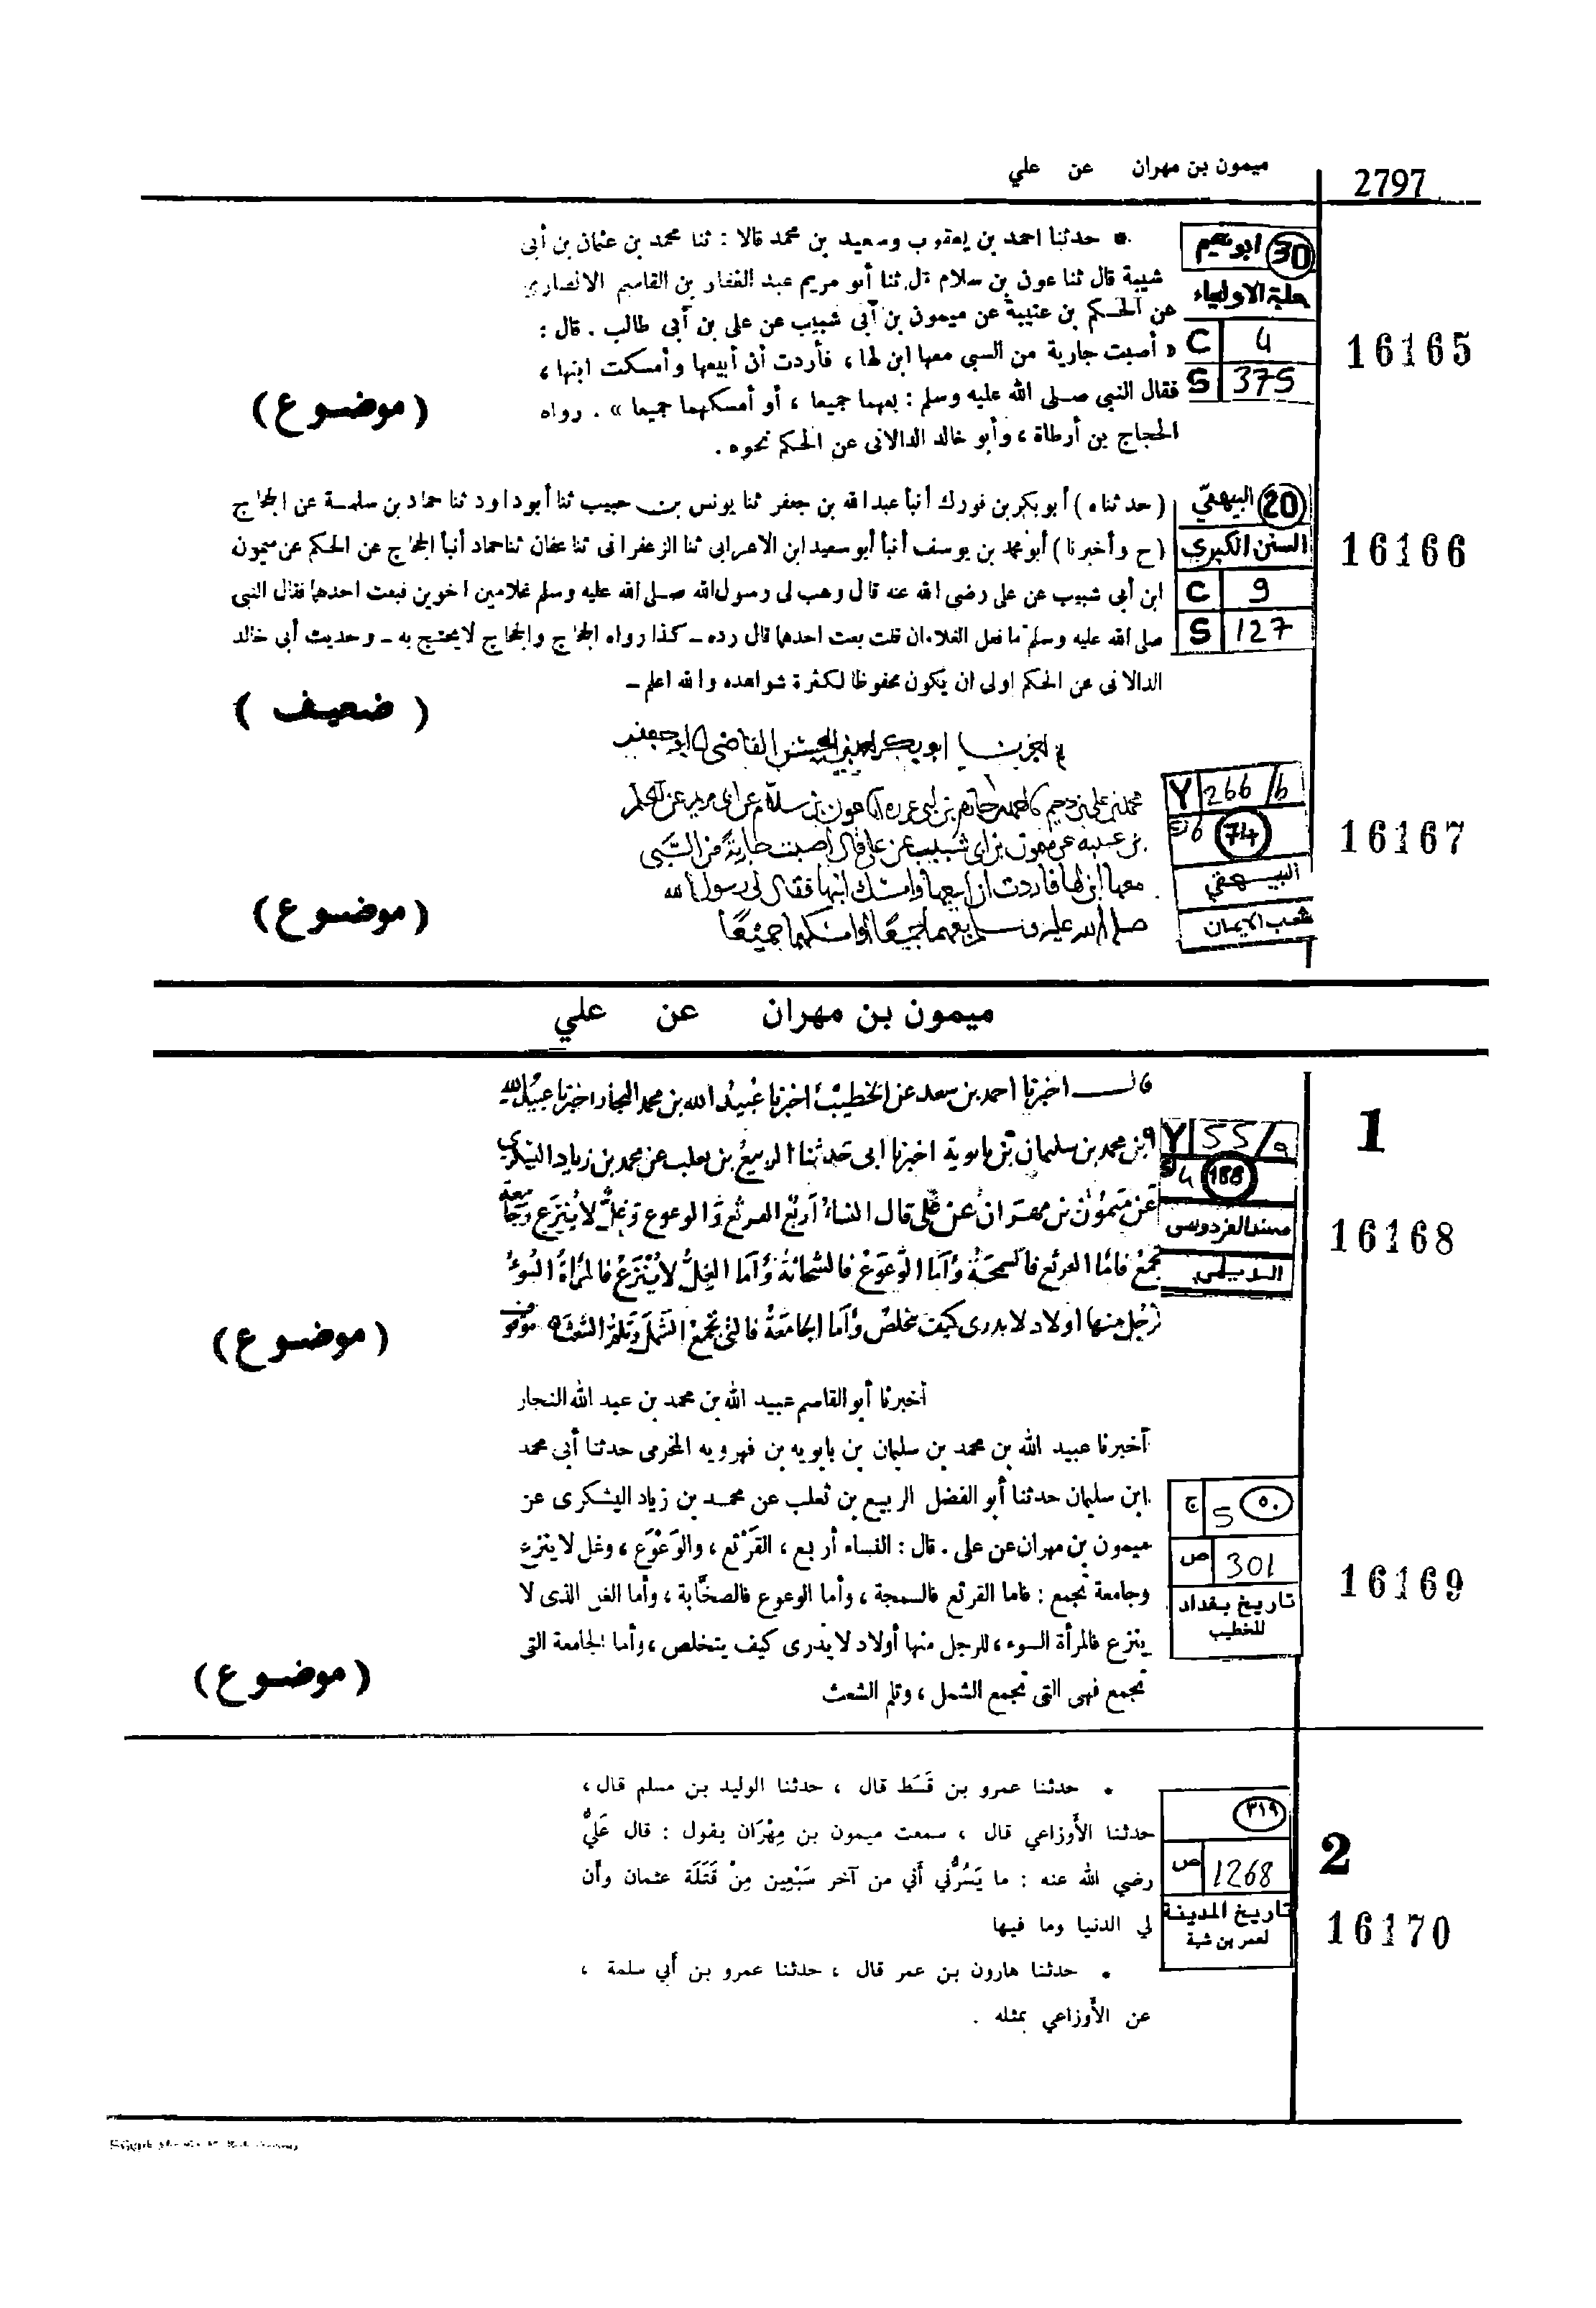 ميمون بن مهران عن علي
2797
* حدثنا احمد بن يعقوب وسعيد بن محمد قالا : ثنا محمد بن عثمان بن أبى
شيبة قال ثنا عون بن سلام قال ثنا أبو مريم عبد الغفار بن القاسم الأنصارى
عن الحكم بن عتيبة عن ميمون بن أبى شبيب عن على بن أبى طالب . قال :
« أصبت جارية من السبى معها ابن لها ، فأردت أن أبيعها وأمسكت ابنها ،
فقال النبى صلى الله عليه وسلم : بعهما جميعا ، أو أمسكهما جميعا » . رواه
الحجاج بن أرطاة ، وأبو خالد الدالانى عن الحكم نحوه .
(موضوع)
30 ابو نعيم
حلية الاولياء
C 4
S 375
16165
( حدثناه ) أبو بكر بن فورك أنبأ عبد الله بن جعفر ثنا يونس بن حبيب ثنا أبو داود ثنا حماد بن سلمة عن الحجاج
( ح وأخبرنا ) أبو محمد بن يوسف أنبأ أبو سعيد ابن الاعرابى ثنا الزعفرانى ثنا عفان ثنا حماد أنبأ الحجاج عن الحكم عن ميمون
ابن أبى شبيب عن على رضى الله عنه قال وهب لى رسول الله صلى الله عليه وسلم غلامين اخوين فبعت احدهما فقال النبى
صلى الله عليه وسلم ما فعل الغلامان قلت بعت احدهما قال رده – كذا رواه الحجاج والحجاج لا يحتج به – وحديث أبى خالد
الدالانى عن الحكم اولى ان يكون محفوظا لكثرة شواهده والله اعلم –
( ضعيف )
20 البيهقي
السنن الكبرى
C 9
S 127
16166
اخبرنا ابو بكر احمد بن الحسن القاضى ابو جعفر
محمد بن على بن دحيم احمد بن حازم بن ابى غرزه عون بن سلام عن ابى مريم عن الحكم
بن عتيبه عن ميمون بن ابى شبيب عن على قال اصبت جارية من السبى
معها ابن لها فاردت ان ابيعها وامسك ابنها فقال لى رسول الله
صلى الله عليه وسلم بعهما جميعًا او امسكهما جميعًا
(موضوع)
Y 266/b
6 74
البيهقي
شعب الايمان
16167
ميمون بن مهران عن علي
قال اخبرنا احمد بن سعد عن الخطيب اخبرنا عبيد الله بن محمد النجار اخبرنا عبيد الله
بن محمد بن سليمان بن بابوية اخبرنا ابى حدثنا الربيع بن ثعلب عن محمد بن زياد اليشكرى
عن ميمون بن مهران عن على قال النساء اربع القرثع والوعوع وغل لا ينتزع وجامعة
تجمع فاما القرثع فالسمجة واما الوعوع فالسخابة واما الغل لا ينتزع فالمراة السوء
للرجل منها اولاد لا يدرى كيف يتخلص واما الجامعة فالتى تجمع الشمل وتلم الشعث
(موضوع)
Y 55/a
4 188
مسند الفردوس
الديلمي
1
16168
أخبرنا أبو القاسم عبيد الله بن محمد بن عبد الله النجار
أخبرنا عبيد الله بن محمد بن سليمان بن بابويه بن فهرويه المخرمى حدثنا أبى محمد
ابن سليمان حدثنا أبو الفضل الربيع بن ثعلب عن محمد بن زياد اليشكرى عن
ميمون بن مهران عن على . قال : النساء أربع ، القَرْثَع ، والوَعْوَع ، وغل لا ينتزع
وجامعة تجمع : فاما القرثع فالسمجة ، وأما الوعوع فالصخَّابة ، وأما الغل الذى لا
ينتزع فالمرأة السوء ، للرجل منها أولاد لا يدرى كيف يتخلص ، وأما الجامعة التى
تجمع فهى التى تجمع الشمل ، وتلم الشعث
(موضوع)
ج 5 ٥٠
ص 301
تاريخ بغداد
للخطيب
16169
* حدثنا عمرو بن قَسَط قال ، حدثنا الوليد بن مسلم قال ،
حدثنا الأَوزاعي قال ، سمعت ميمون بن مِهْرَان يقول : قال عَلَيٌّ
رضي الله عنه : ما يَسُرُّني أَني من آخر سَبْعِين مِنْ قَتَلَة عثمان وأَن
لي الدنيا وما فيها
* حدثنا هارون بن عمر قال ، حدثنا عمرو بن أَبي سلمة ،
عن الأَوزاعي بمثله .
٣١٩
ص 1268
تاريخ المدينة
لعمر بن شبة
2
16170